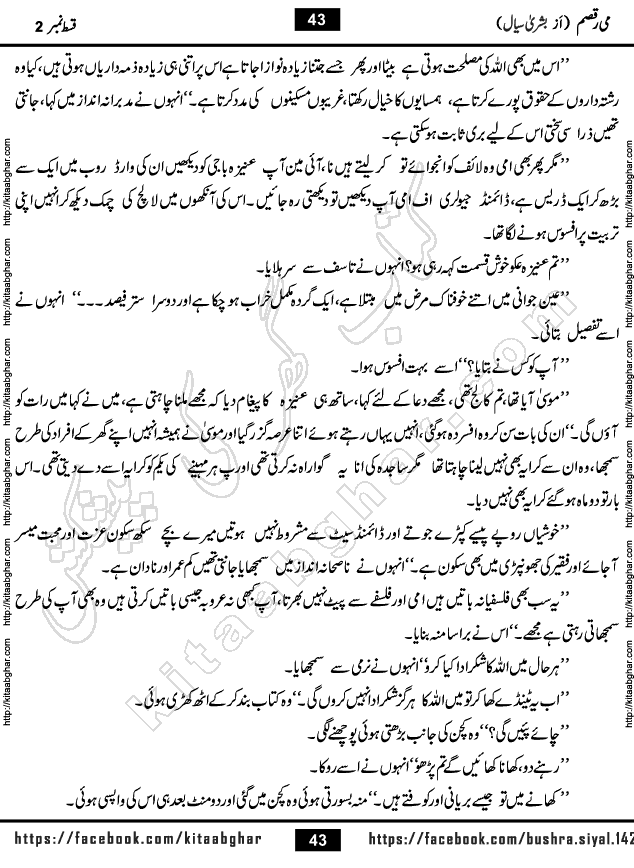 قسط نمبر 2
43
می رقصم (از بشریٰ سیال)
’’اس میں بھی اللہ کی مصلحت ہوتی ہے بیٹا اور پھر جسے جتنا زیادہ نوازا جاتا ہے اس پر اتنی ہی زیادہ ذمہ داریاں ہوتی ہیں، کیا وہ
رشتہ داروں کے حقوق پورے کرتا ہے، ہمسایوں کا خیال رکھتا، غریبوں مسکینوں کی مدد کرتا ہے۔‘‘ انہوں نے مدبرانہ انداز میں کہا، جانتی
تھیں ذرا سی سختی اس کے لیے بری ثابت ہو سکتی ہے۔
’’مگر پھر بھی امی وہ لائف کو انجوائے تو کر لیتے ہیں نا، آئی مین آپ عنیزہ باجی کو دیکھیں ان کی وارڈ روب میں ایک سے
بڑھ کر ایک ڈریس ہے، ڈائمنڈ جیولری اف امی آپ دیکھیں تو دیکھتی رہ جائیں۔ اس کی آنکھوں میں لالچ کی چمک دیکھ کر انہیں اپنی
تربیت پر افسوس ہونے لگا تھا۔
’’تم عنیزہ کو خوش قسمت کہہ رہی ہو؟ انہوں نے تاسف سے سر ہلایا۔
’’عین جوانی میں اتنے خوفناک مرض میں مبتلا ہے، ایک گردہ مکمل خراب ہو چکا ہے اور دوسرا ستر فیصد۔۔۔‘‘ انہوں نے
اسے تفصیل بتائی۔
’’آپ کو کس نے بتایا؟‘‘ اسے بہت افسوس ہوا۔
’’موسیٰ آیا تھا، تم کالج تھی، مجھے دعا کے لئے کہا، ساتھ ہی عنیزہ کا پیغام دیا کہ مجھے ملنا چاہتی ہے، میں نے کہا میں رات کو
آؤں گی۔‘‘ ان کی بات سن کر وہ افسردہ ہو گئی، انہیں یہاں رہتے ہوئے اتنا عرصہ گزر گیا اور موسیٰ نے ہمیشہ انہیں اپنے گھر کے افراد کی طرح
سمجھا، وہ ان سے کرایہ بھی نہیں لینا چاہتا تھا مگر ساجدہ کی انا یہ گوارا نہ کرتی تھی اور پر ہر مہینے کی یکم کو کرایہ اسے دے دیتی تھی۔ اس
بار تو دو ماہ ہو گئے کرایہ بھی نہیں دیا۔
’’خوشیاں روپے پیسے کپڑے جوتے اور ڈائمنڈ سیٹ سے مشروط نہیں ہوتیں میرے بچے سکھ سکون عزت اور محبت میسر
آ جائے اور فقیر کی جھونپڑی میں بھی سکون ہے۔‘‘ انہوں نے ناصحانہ انداز میں سمجھایا جانتی تھیں کم عمر اور نادان ہے۔
’’یہ سب بھی فلسفیانہ باتیں ہیں امی اور فلسفے سے پیٹ نہیں بھرتا، آپ کبھی نہ عروبہ جیسی باتیں کرتی ہیں وہ بھی آپ کی طرح
سمجھاتی رہتی ہے مجھے۔‘‘ اس نے برا سا منہ بنایا۔
’’ہر حال میں اللہ کا شکر ادا کیا کرو‘‘ انہوں نے نرمی سے سمجھایا۔
’’اب یہ ٹینڈے کھا کر تو میں اللہ کا ہرگز شکر ادا نہیں کروں گی۔‘‘ وہ کتاب بند کر کے اٹھ کھڑی ہوئی۔
’’چائے پئیں گی؟‘‘ وہ کچن کی جانب بڑھتی ہوئی پوچھنے لگی۔
’’رہنے دو، کھانا کھائیں گے تم پڑھو‘‘ انہوں نے اسے روکا۔
’’کھانے میں تو جیسے بریانی اور کوفتے ہیں۔‘‘ منہ بسورتی ہوئی وہ کچن میں گئی اور دو منٹ بعد ہی اس کی واپسی ہوئی۔
http://kitaabghar.com http://kitaabghar.com http://kitaabghar.com http://kitaabghar.com http://kitaabghar.com http://kitaabghar.com
http://kitaabghar.com http://kitaabghar.com http://kitaabghar.com http://kitaabghar.com http://kitaabghar.com http://kitaabghar.com
کتاب گھر کی پیشکش
kitaabghar.com
https://facebook.com/kitaabghar
43
https://facebook.com/bushra.siyal.142